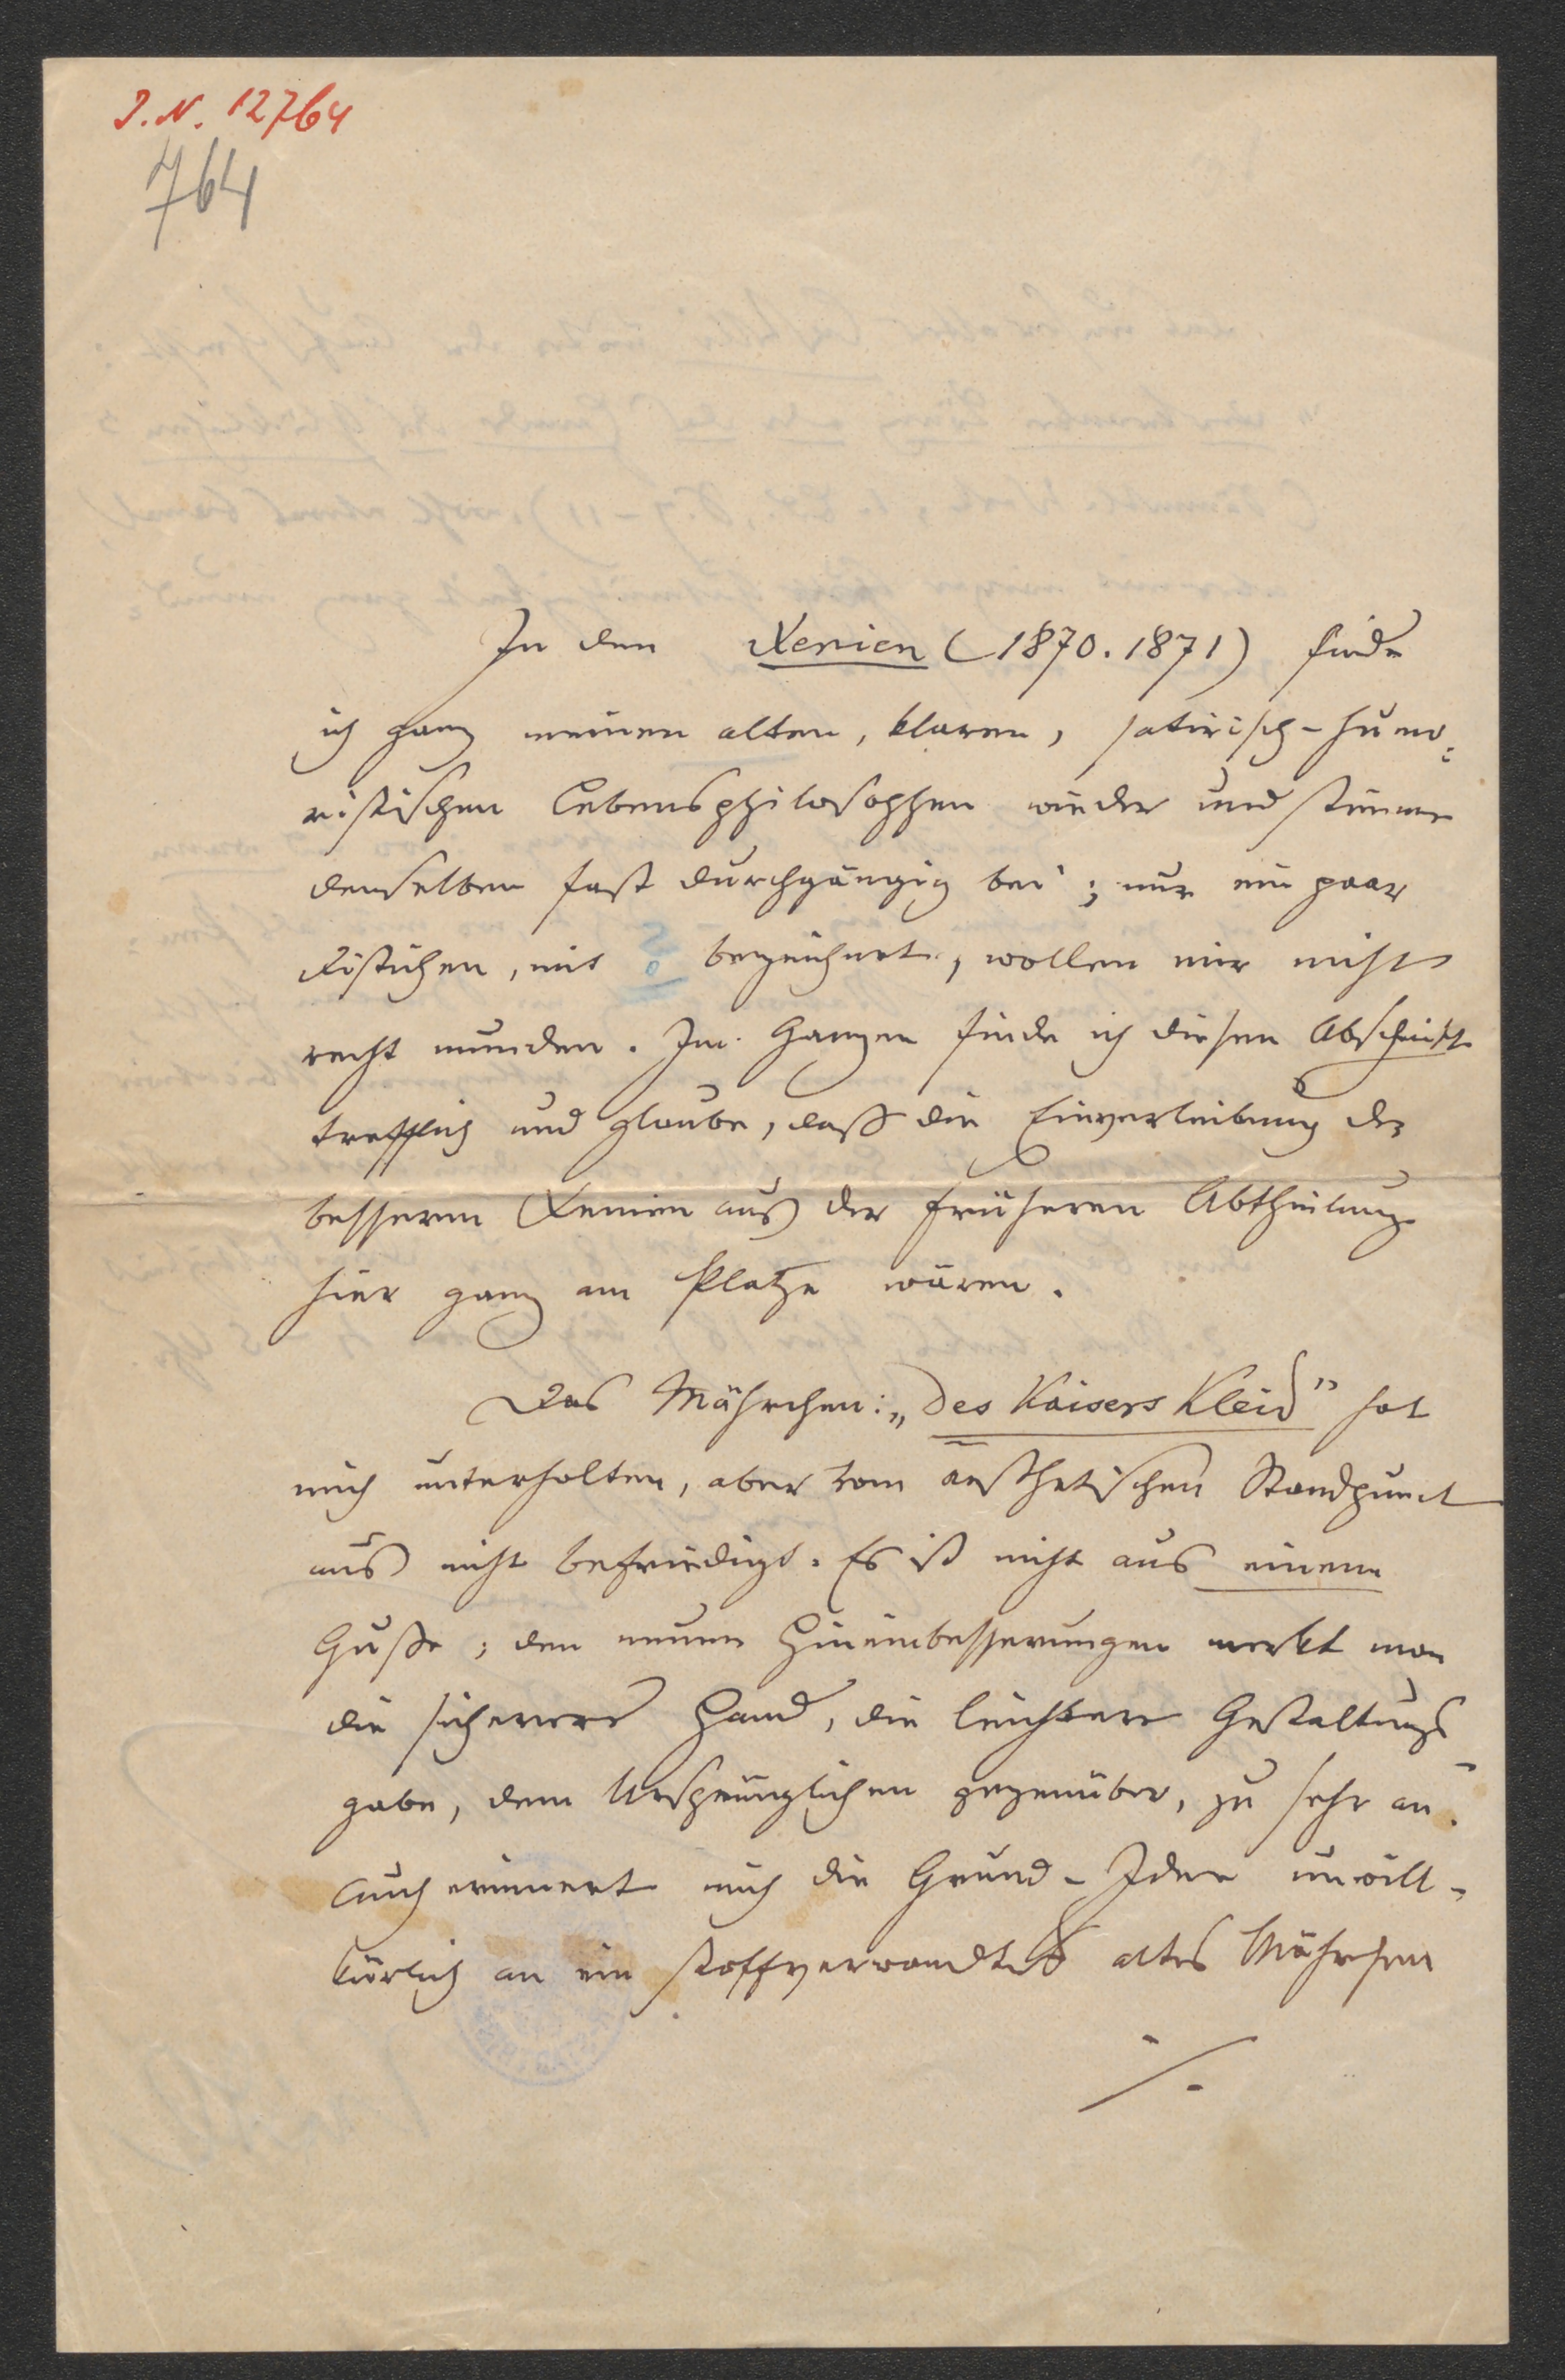 I. N. 12764
764
In den Xenien (1870. 1871) finde
ich ganz meinen alten, klaren, satirisch-humo-
ristischen Lebensphilosophen wieder und stimme
demselben fast durchgängig bei; nur ein paar
Distichen, mit bezeichnet, wollen mir nicht
recht munden. Im Ganzen finde ich diesen Abschnitt
trefflich und glaube, daß die Einverleibung der
besseren Xenien aus der früheren Abtheilung
hier ganz am Platze wären.
Das Mährchen: „Des Kaisers Kleid" hat
mich unterhalten, aber vom aesthetischen Standpunct
aus nicht befriedigt. Es ist nicht aus einem
Guße; den neuen Hineinbesserungen merkt man
die sicherere Hand, die leichtere Gestaltungs-
gabe, dem Ursprünglichen gegenüber, zu sehr an.
Auch erinnert mich die Grund-Idee unwill-
kürlich an ein stoffverwandtes altes Mährchen
./.